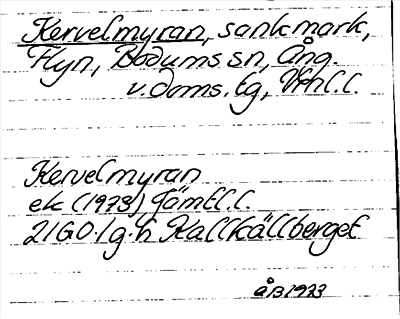 Kervelmyran, sankmark,
Flyn, Bodums sn, Ång.
v. doms. tg, Vbnl.l.
Kervelmyran
ek (1973) Jämtl.l.
21G0.1g.h Kallkällberget
åB1973